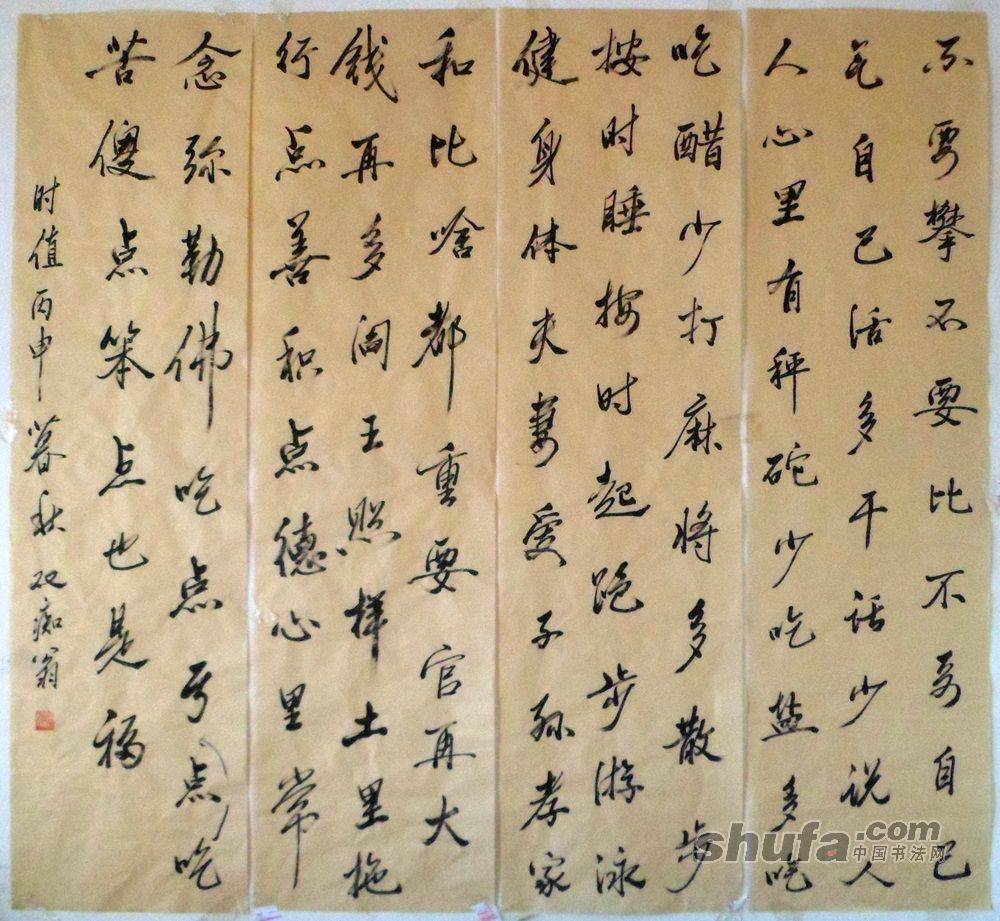 不要攀不要比不要自己
气自己活多干话少说人
人心里有秤砣少吃盐多吃
吃醋少打麻将多散步
按时睡按时起跑步游泳
健身体夫妻爱子孙孝家
和比啥都重要官再大
钱再多阎王照样土里拖
行点善积点德心里常
念弥勒佛吃点亏点吃
苦傻点笨点点也是福
时值丙申暮秋痴翁
shufa.com
中国书法网